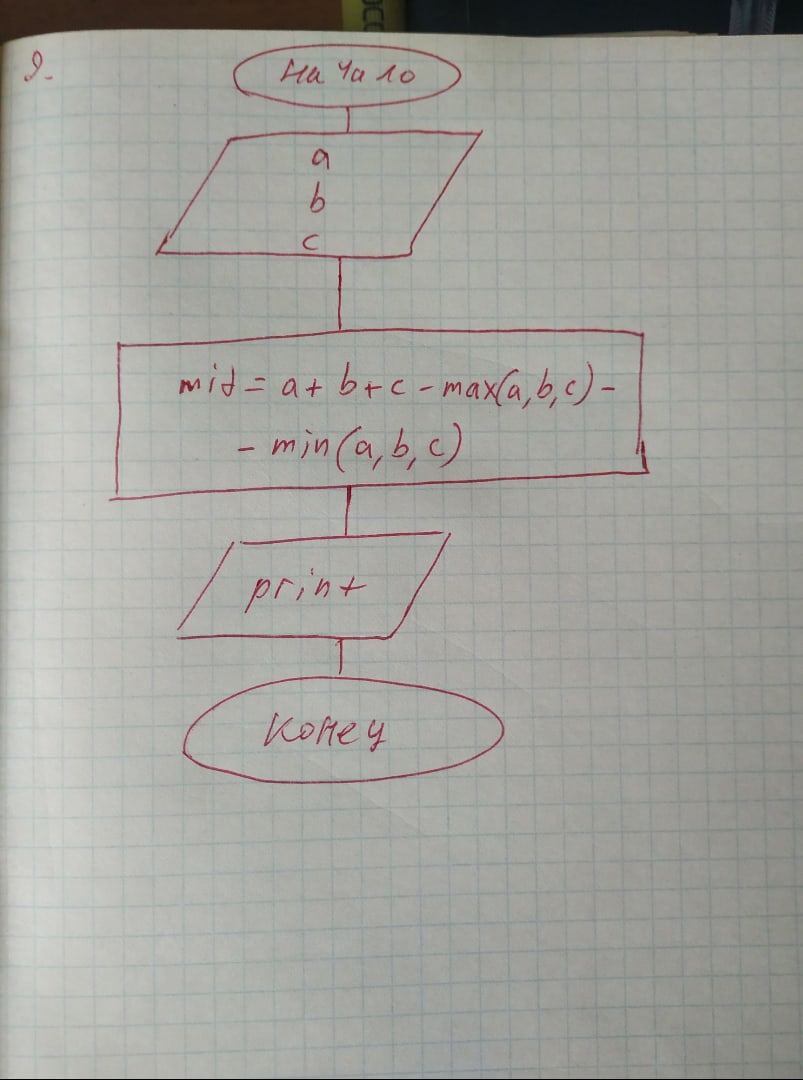 9.
Начало
a
b
c
mid = a + b + c - max(a, b, c) -
- min(a, b, c)
print
Конец